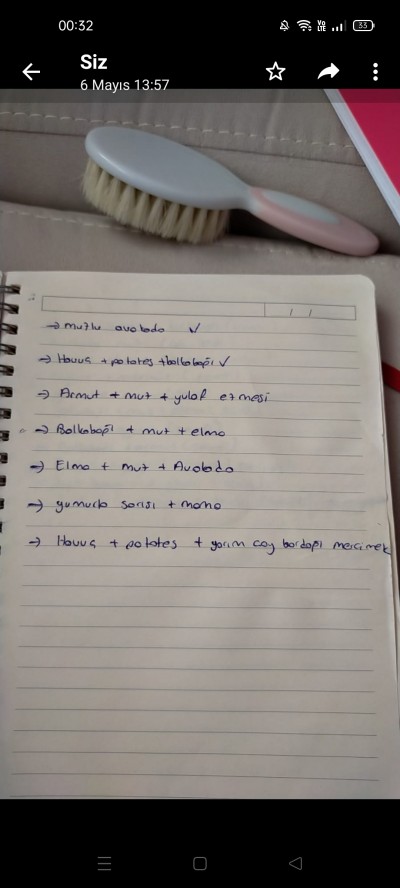 00:32
Vo LTE 33
Siz
6 Mayıs 13:57
→ muzlu avokado ✓
→ Havuç + patates + balkabağı ✓
→ Armut + muz + yulaf ezmesi
→ Balkabağı + muz + elma
→ Elma + muz + Avokado
→ yumurta sarısı + mama
→ Havuç + patates + yarım çay bardağı mercimek